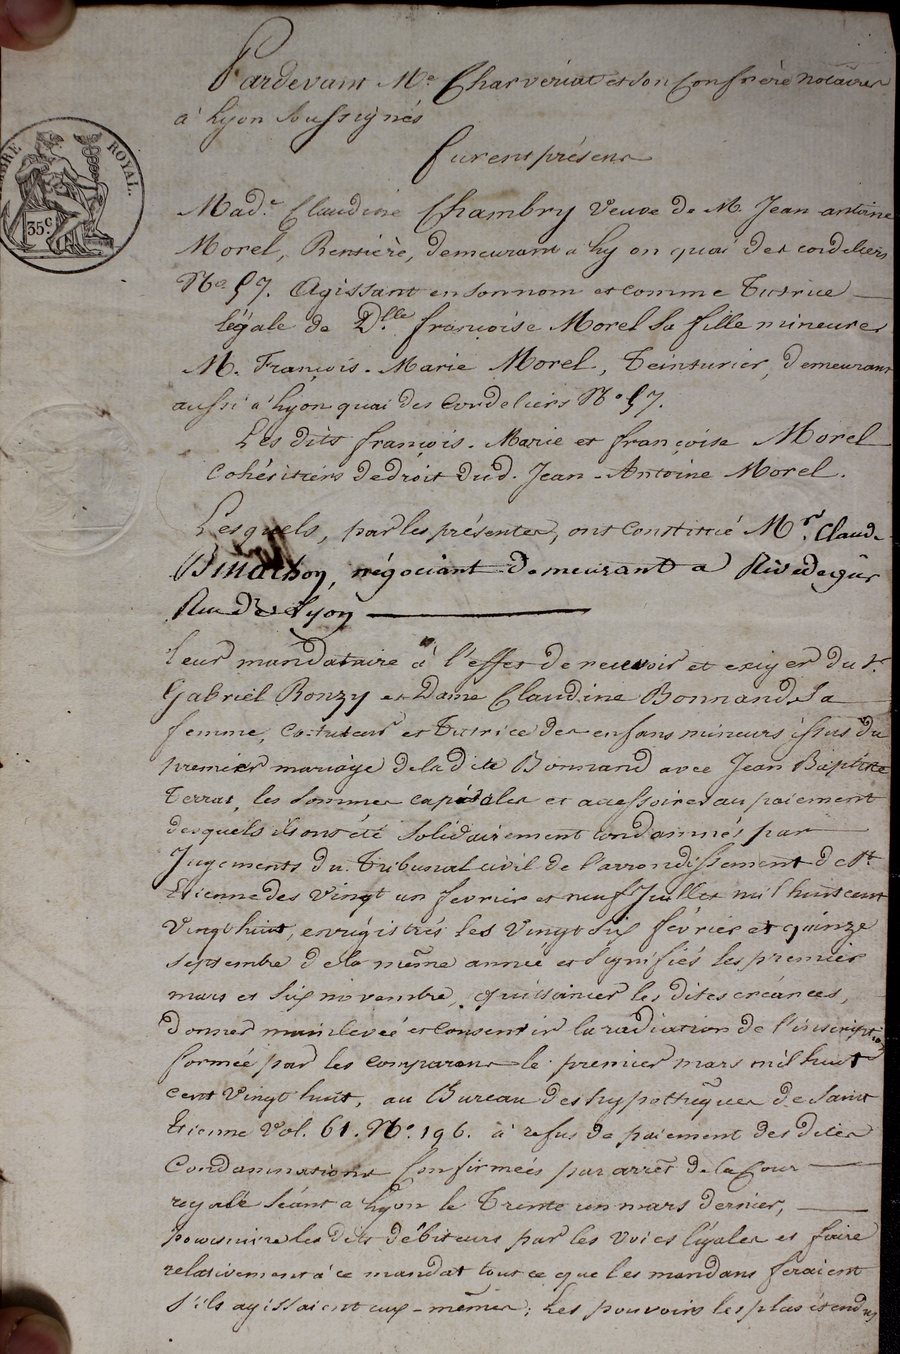 Pardevant Me. Charvériat et son Confrère notaires
à Lyon Soussignés
furent présens
TIMBRE ROYAL.
35c.
Made. Claudine Chambry veuve de M. Jean antoine
Morel, Rentière, demeurant a Lyon quai des cordeliers
No. 57. Agissant en son nom et comme Tutrice
légale de Dlle françoise Morel Sa fille mineure
M. François-Marie Morel, Teinturier, demeurant
aussi à Lyon quai des Cordeliers No. 57.
Les dits françois-Marie et françoise Morel
Cohéritiers de droit dud. Jean-Antoine Morel.
Lesquels, par les présentes, ont Constitué Mr. Claude
Binachon, négociant demeurant a Rivedegier
Rue de Lyon
leur mandataire à l'effet de recevoir et exiger du Sr.
Gabriël Ronzy et Dame Claudine Bonnand Sa
femme, Co-tuteur et Tutrice des enfans mineurs issus du
premier mariage de la dite Bonnand avec Jean Baptiste
Terrat, les Sommes capitales et accessoires au paiement
desquels ils ont été Solidairement condamnés par
Jugements du Tribunal civil de l'arrondissement de St.
Etienne des Vingt un fevrier et neuf Juillet mil huit cent
Vingt huit, enrégistrés les Vingt Six février et quinze
Septembre de la même année et Signifiés les premier
mars et Six novembre, quittancer les dites créances,
donner main levée et Consentir la radiation de l'inscription
formée par les comparans le premier mars mil huit
cent Vingt huit, au Bureau des hypothèques de Saint
Etienne Vol. 61. No. 196. à refus de paiement des dites
Condamnations Confirmées par arrêt de la Cour
royale Séant a Lyon le Trente un mars dernier,
poursuivre les dits débiteurs par les voies légales et faire
relativement à ce mandat tout ce que les mandans feraient
S'ils agissaient eux-mêmes; Les pouvoirs les plus étendus